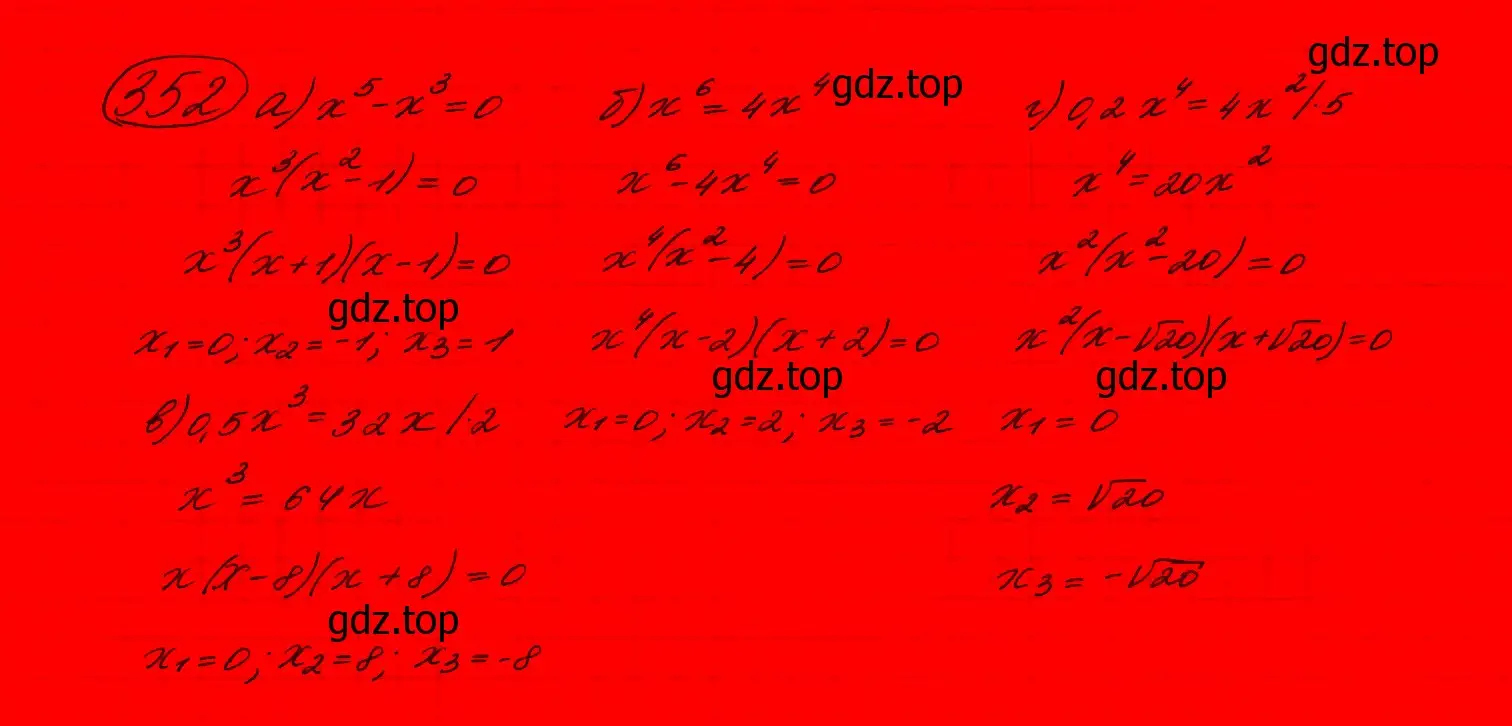 gdz.top
352 а) x⁵ - x³ = 0
x³(x² - 1) = 0
x³(x + 1)(x - 1) = 0
gdz.top
x₁ = 0; x₂ = -1; x₃ = 1
в) 0,5x³ = 32x /·2
x³ = 64x
x(x - 8)(x + 8) = 0
gdz.top
x₁ = 0; x₂ = 8; x₃ = -8
б) x⁶ = 4x⁴
gdz.top
x⁶ - 4x⁴ = 0
x⁴(x² - 4) = 0
x⁴(x - 2)(x + 2) = 0
gdz.top
x₁ = 0; x₂ = 2; x₃ = -2
г) 0,2x⁴ = 4x² /·5
x⁴ = 20x²
x²(x² - 20) = 0
x²(x - √20)(x + √20) = 0
gdz.top
x₁ = 0
x₂ = √20
x₃ = -√20